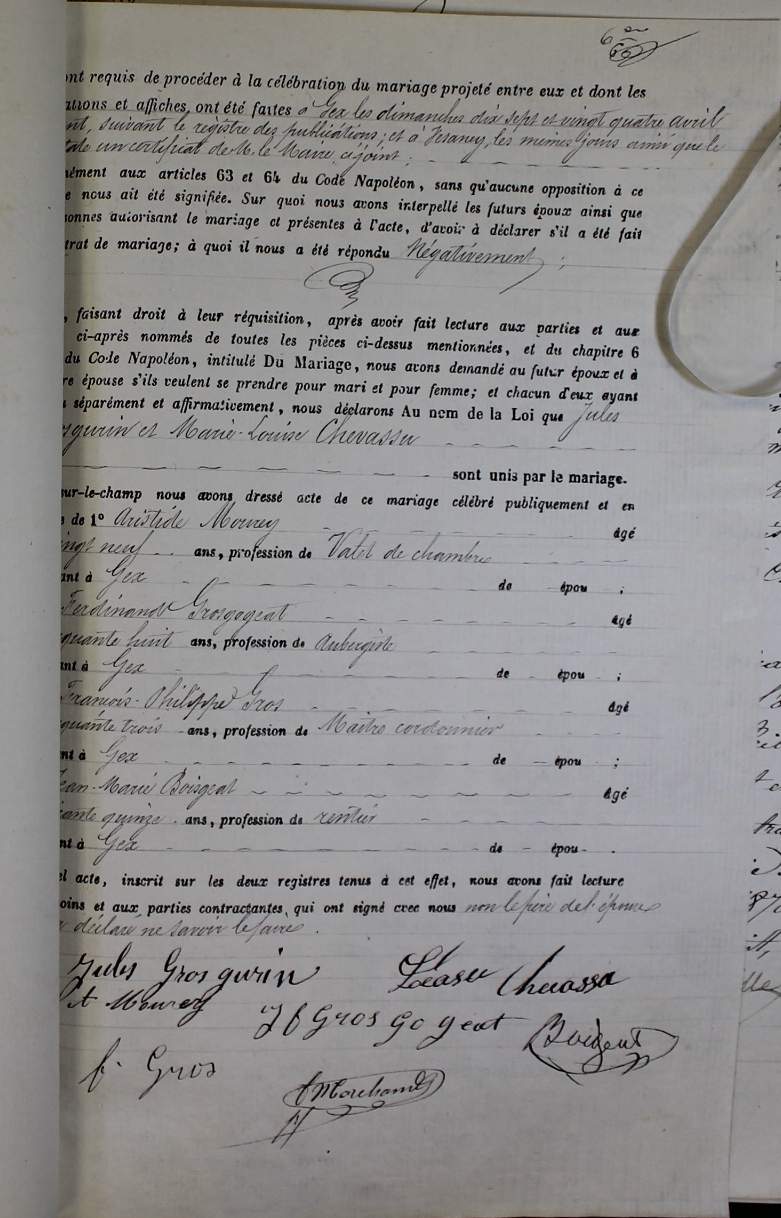 6
ont requis de procéder à la célébration du mariage projeté entre eux et dont les
ations et affiches, ont été faites à Gex les dimanches dix sept et vingt quatre avril
nt, suivant le registre des publications; et à Versoney, les mêmes jours ainsi que le
tate un certificat de M. le Maire, ci joint;
ément aux articles 63 et 64 du Code Napoléon, sans qu'aucune opposition à ce
e nous ait été signifiée. Sur quoi nous avons interpellé les futurs époux ainsi que
sonnes autorisant le mariage et présentes à l'acte, d'avoir à déclarer s'il a été fait
trat de mariage; à quoi il nous a été répondu Négativement;
, faisant droit à leur réquisition, après avoir fait lecture aux parties et aux
ci-après nommés de toutes les pièces ci-dessus mentionnées, et du chapitre 6
du Code Napoléon, intitulé Du Mariage, nous avons demandé au futur époux et à
re épouse s'ils veulent se prendre pour mari et pour femme; et chacun d'eux ayant
séparément et affirmativement, nous déclarons Au nom de la Loi que Jules
sgurin et Marie-Louise Chevassu
sont unis par le mariage.
sur-le-champ nous avons dressé acte de ce mariage célébré publiquement et en
de 1° Aristide Mourey âgé
ingt neuf ans, profession de Valet de chambre
ant à Gex de épou ;
Ferdinand Grosgogeat âgé
quante huit ans, profession de Aubergiste
nt à Gex de épou ;
François-Philippe Gros âgé
quante trois ans, profession de Maître cordonnier
nt à Gex de épou ;
ean-Marie Boisgeat âgé
ante quinze ans, profession de rentier
nt à Gex de épou .
el acte, inscrit sur les deux registres tenus à cet effet, nous avons fait lecture
oins et aux parties contractantes, qui ont signé avec nous non le père de l'épouse
a déclaré ne savoir le faire.
Jules Grosgurin Chevassu
At Mourey J f Grosgogeat Boisgeat
f. Gros
Marchand